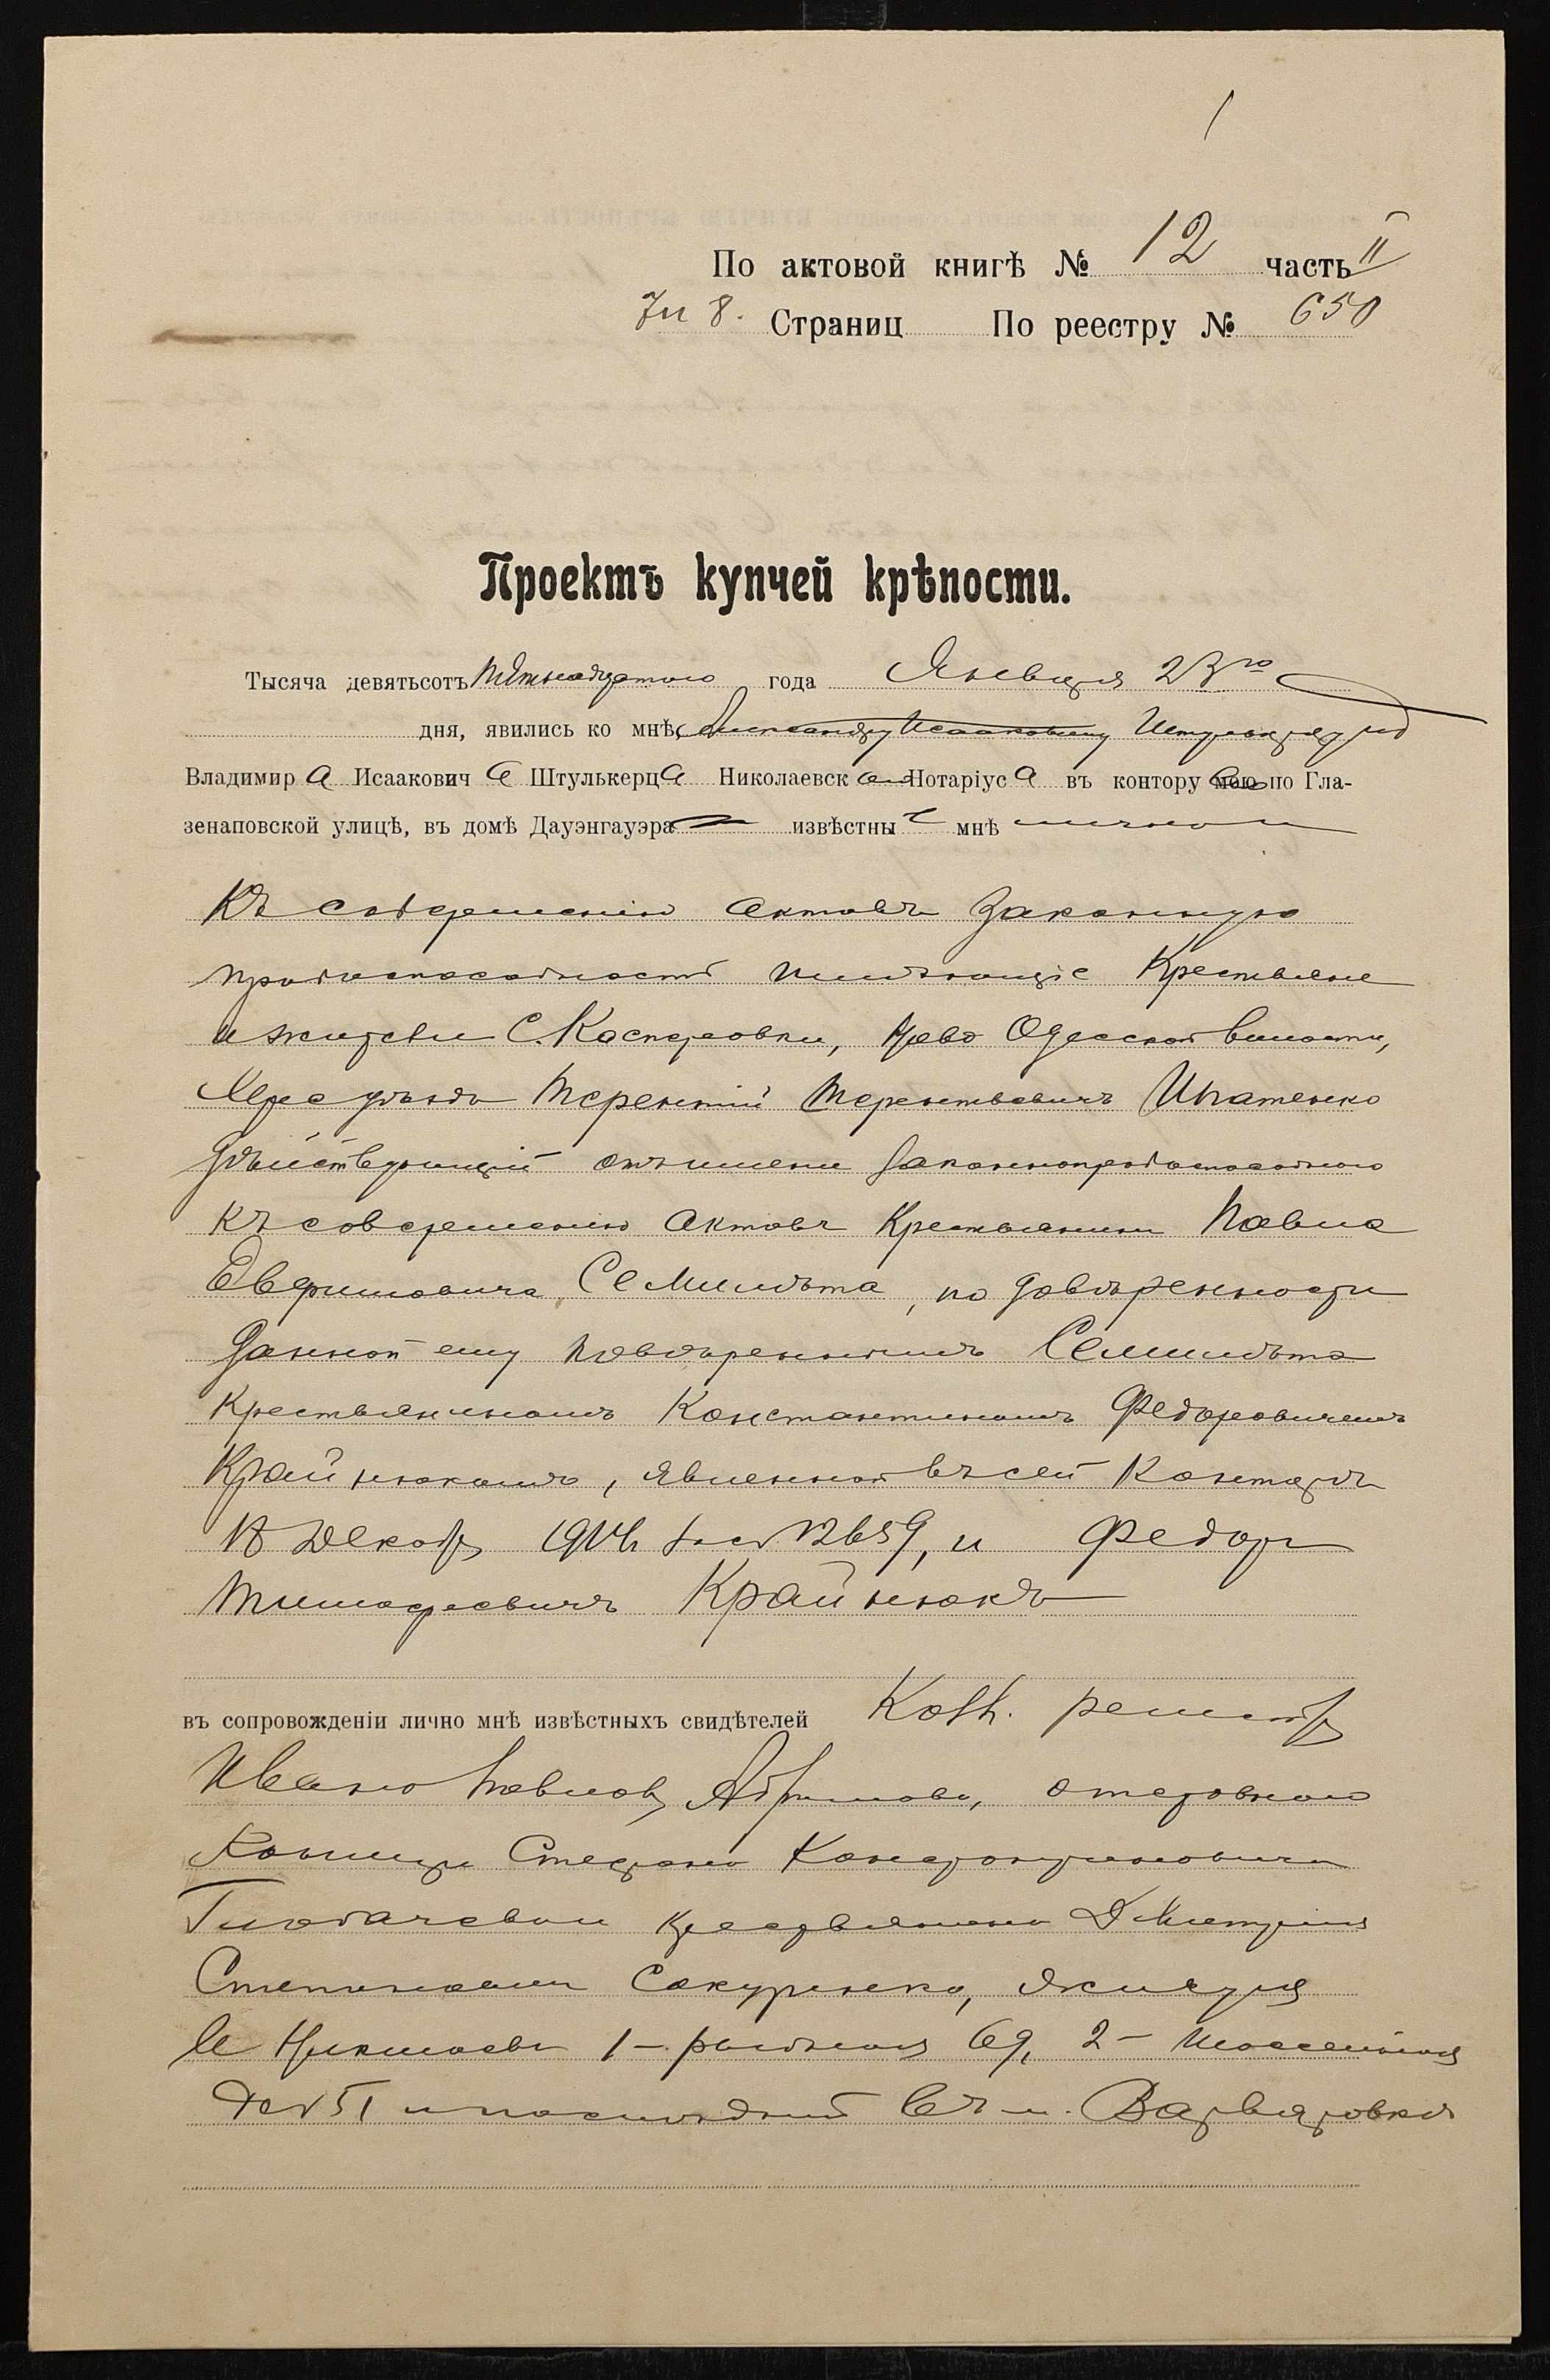 По актовой книгѣ № 12 часть II
7 и 8. Страниц По реестру № 650
Проектъ купчей крѣпости.
Тысяча девятьсотъ пятнадцатого года Января 23го
дня, явились ко мнѣ, Александру Исааковичу
Владимир а Исаакович а Штулькерц а Николаевск аго Нотаріус а въ контору мою по Гла-
зенаповской улицѣ, въ домѣ Дауэнгауэра извѣстны е мнѣ лично и
къ совершенію актовъ законную
правоспособность имѣющіе Крестьяне
и жители С. Касперовки, Ново Одесской волости,
Херс уѣзда Терентій Терентьевичъ Ипатенко
дѣйствующій отъ имени законноправоспособного
къ совершенію актовъ Крестьянина Павла
Семилѣта, по довѣренности
данной ему повѣреннымъ Семилѣта
Крестьяниномъ Константиномъ Федоровичемъ
Крайнюкомъ, явленной въ сей Конторѣ
18 Декабр 1914 г. за № 12659, и Федоръ
Тимофеевичъ Крайнюкъ
въ сопровожденіи лично мнѣ извѣстныхъ свидѣтелей Колл. регистр
Ивана Павлов
Стефана Константиновича
крестьянина Дмитрія
Степановича Сакуренко, жилищ
въ Николаевѣ 1- 69, 2-
д № 51 и послѣдній въ м. Варваровкѣ